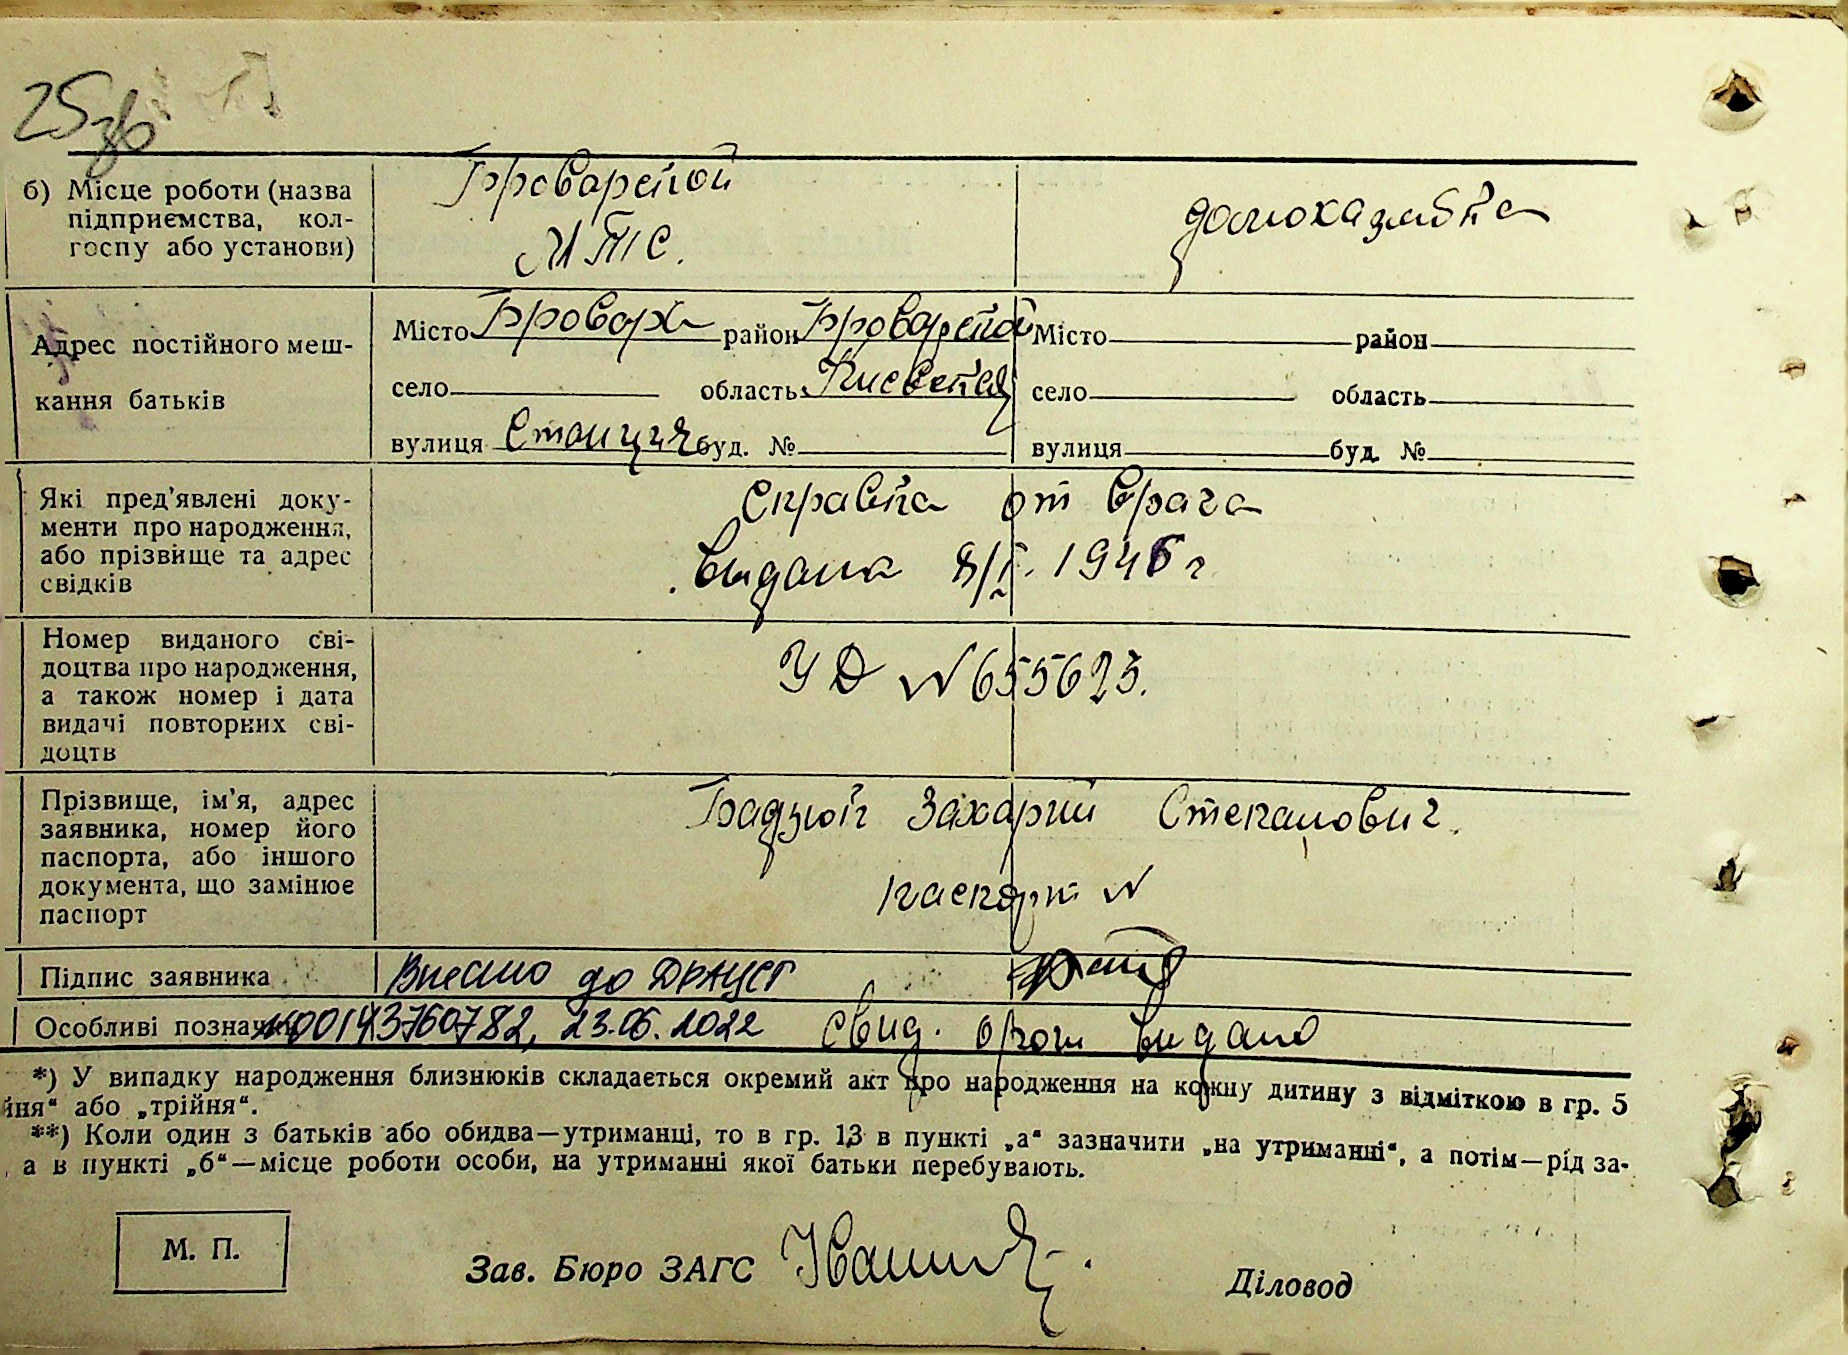 25зв
б) Місце роботи (назва
підприємства, кол-
госпу або установи)
Броварской
М Т С.
домохазяйка
Адрес постійного меш-
кання батьків
Місто Бровары район Броварской
село область Киевская
вулиця Станция буд. №
Місто район
село область
вулиця буд. №
Які пред'явлені доку-
менти про народження,
або прізвище та адрес
свідків
Справка от врача
выдана 8/I. 1946 г
Номер виданого сві-
доцтва про народження,
а також номер і дата
видачі повторних сві-
доцтв
УД N 655623.
Прізвище, ім'я, адрес
заявника, номер його
паспорта, або іншого
документа, що замінює
паспорт
Захарий Степанович.
паспорт N
Підпис заявника
Внесено до ДРАЦСГ
Особливі позначки
№00143760782, 23.06.2022
свид. о рожд выдано
*) У випадку народження близнюків складається окремий акт про народження на кожну дитину з відміткою в гр. 5
йня“ або „трійня“.
**) Коли один з батьків або обидва—утриманці, то в гр. 13 в пункті „а“ зазначити „на утриманні“, а потім—рід за-
, а в пункті „б“—місце роботи особи, на утриманні якої батьки перебувають.
М. П.
Зав. Бюро ЗАГС
Діловод